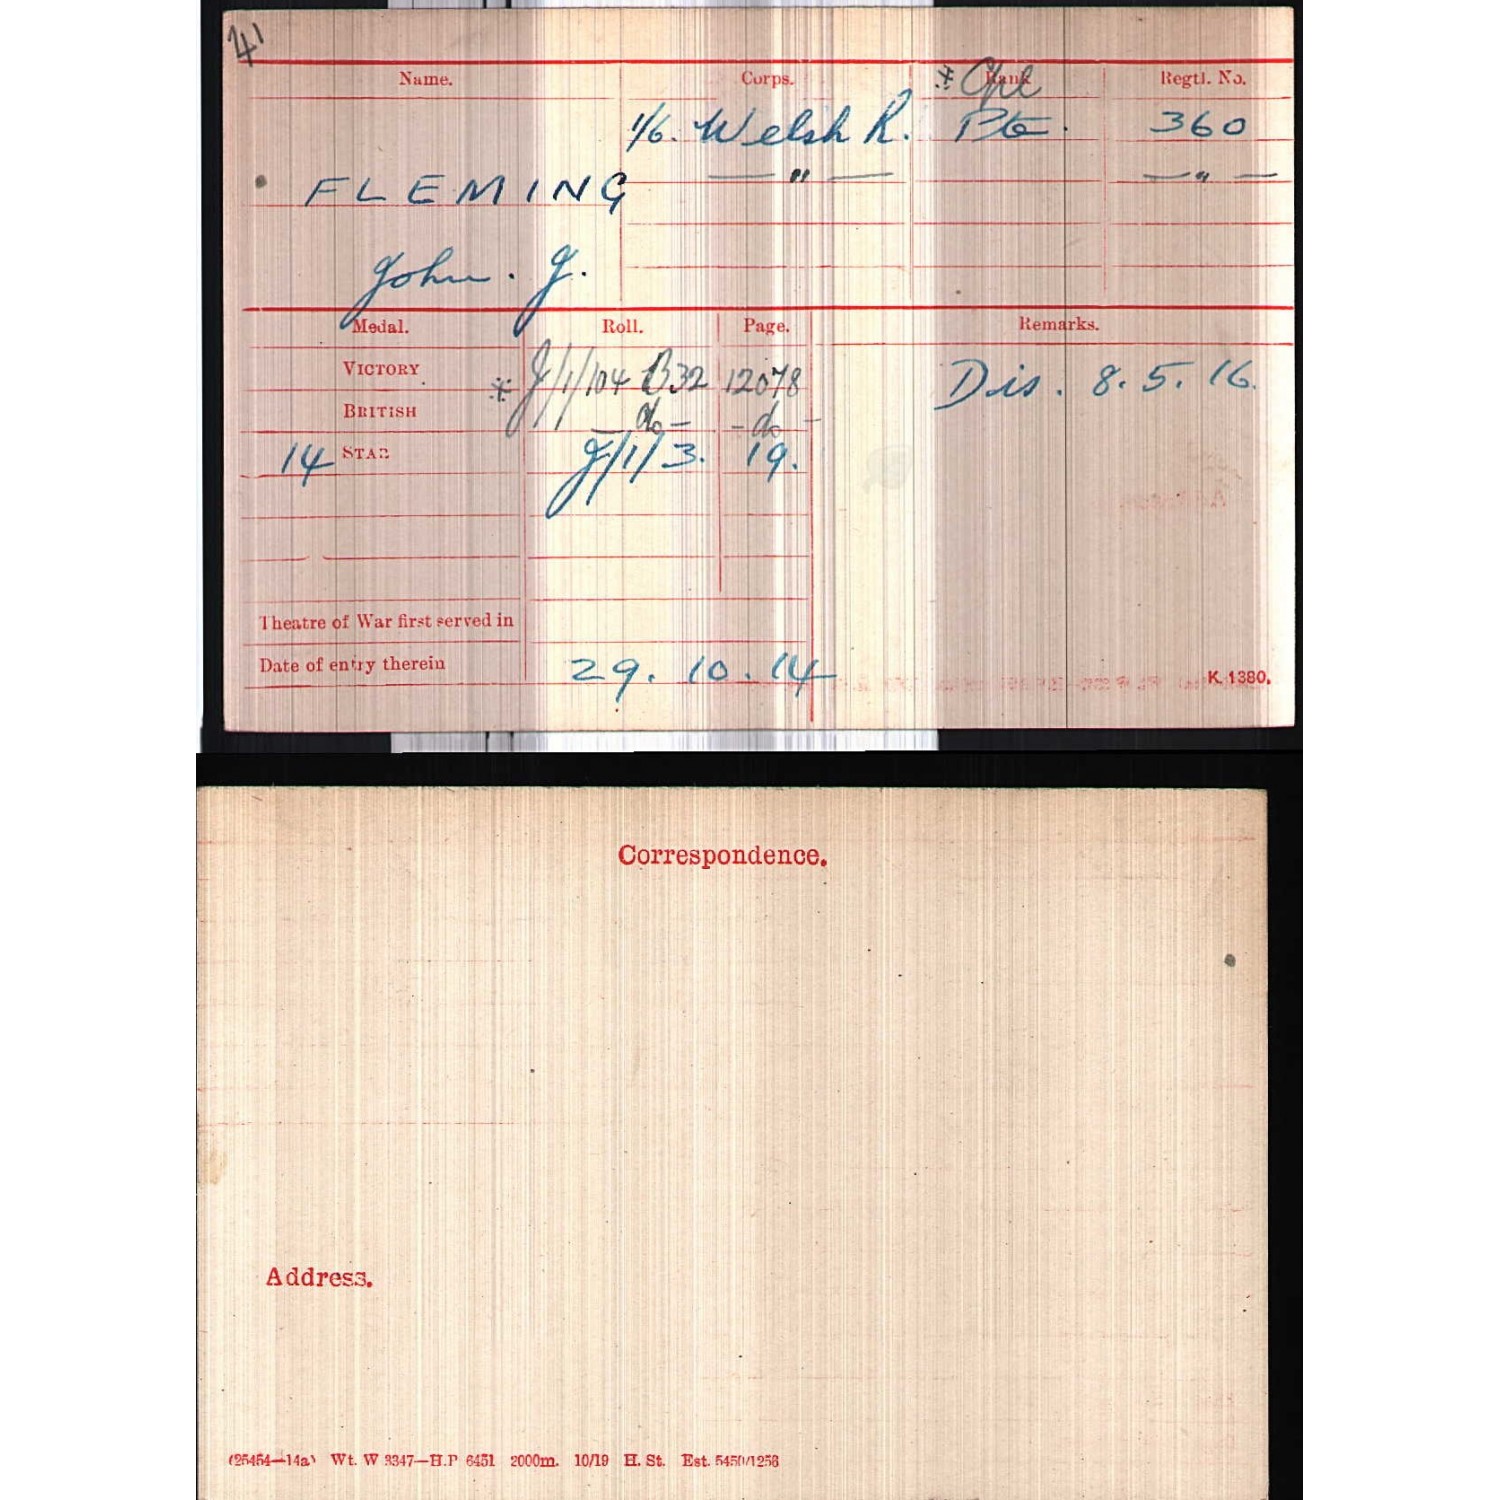 41
Name. Corps. Rank Regtl. No.
* Cpl
1/6. Welsh R. Pte. 360
— " — — " —
FLEMING
John. J.
Medal. Roll. Page. Remarks.
VICTORY * J/1/104 B32 12078 Dis. 8.5.16.
BRITISH — do — - do -
14 STAR J/1/3. 19.
Theatre of War first served in
Date of entry therein 29.10.14
K. 1380.
Correspondence.
Address.
(25454—14a) Wt. W 3347—H.P 6451 2000m. 10/19 H. St. Est. 5450/1256